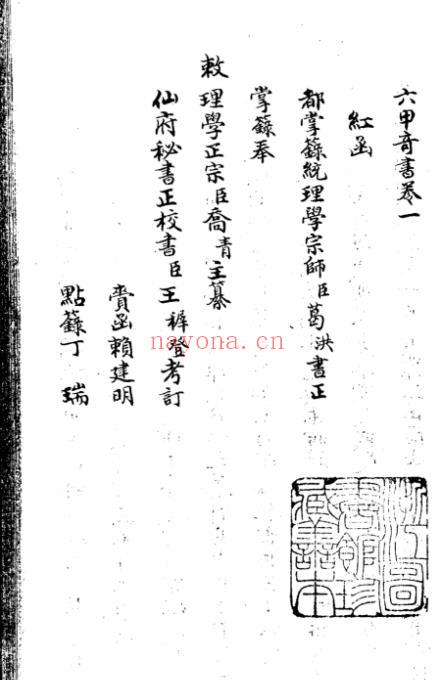 六甲奇書卷一
紅函
都掌籙統理學宗師臣葛洪書正
掌籙奉
敕理學正宗臣喬青主纂
仙府秘書正校書臣王穉登考訂
賫函賴建明
點籙丁 瑞
浙江圖
書館珍
藏善本
nayona.cn